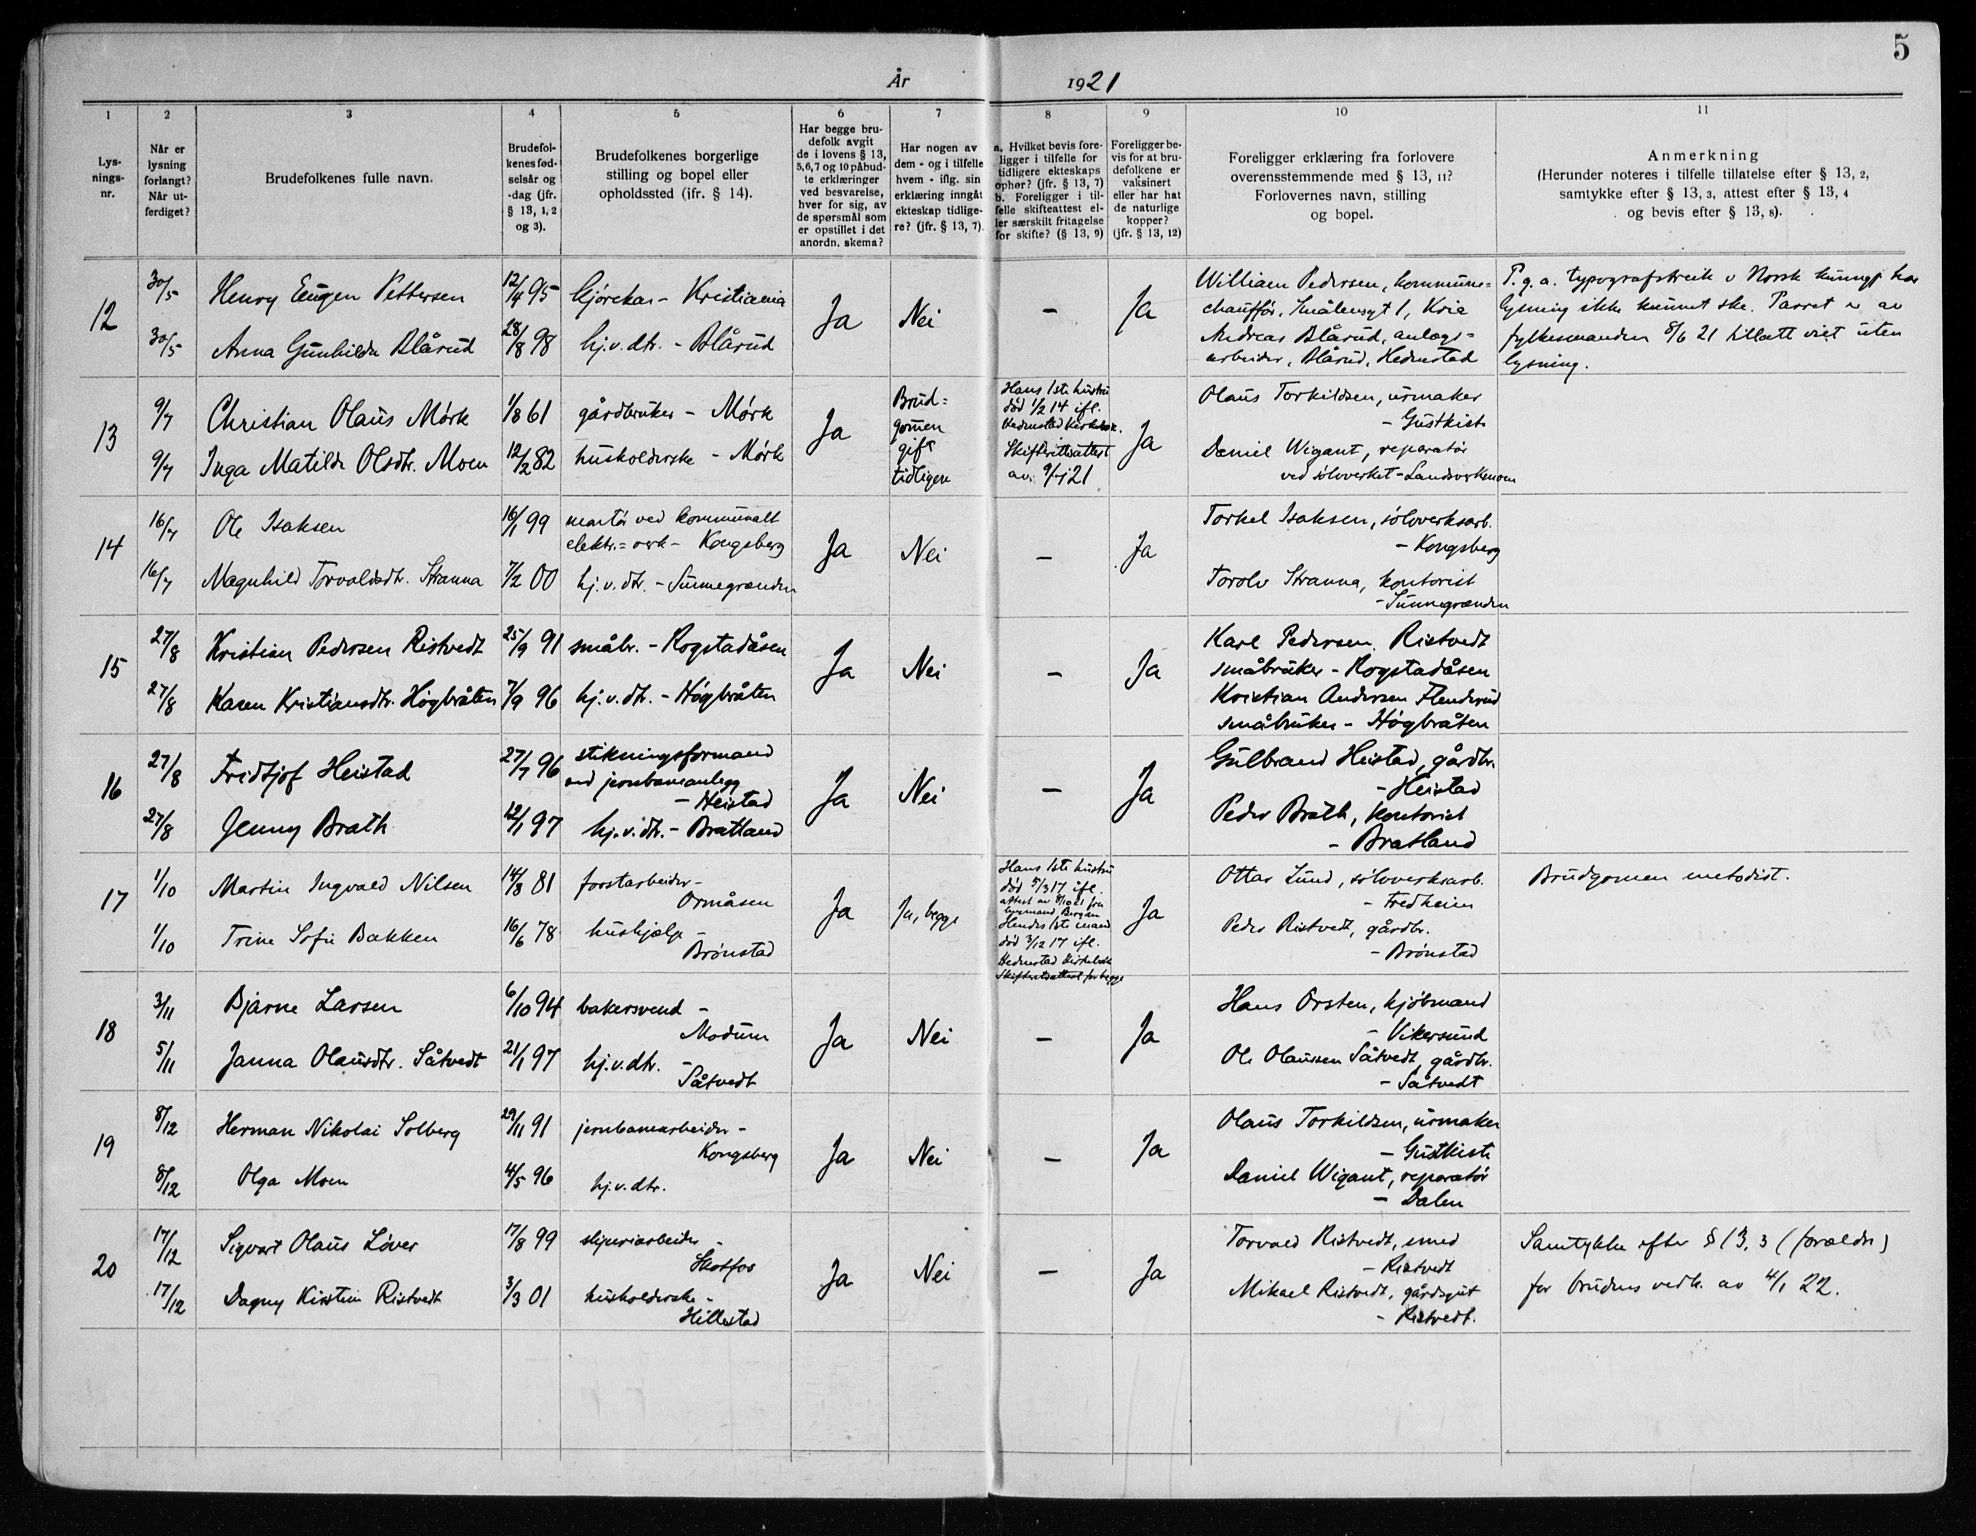 5
År 1921
1 2 3 4 5 6 7 8 9 10 11
Lys-
nings-
nr.
Når er
lysning
forlangt?
Når ut-
ferdiget?
Brudefolkenes fulle navn.
Brudefol-
kenes fød-
selsår og
-dag (jfr.
§ 13, 1, 2
og 3).
Brudefolkenes borgerlige
stilling og bopel eller
opholdssted (ifr. § 14).
Har begge bru-
defolk avgit
de i lovens § 13,
5,6,7 og 10 påbud-
te erklæringer
ved besvarelse,
hver for sig, av
de spørsmål som
er opstillet i det
anordn. skema?
Har nogen av
dem - og i tilfelle
hvem - iflg. sin
erklæring inngåt
ekteskap tidlige-
re? (jfr. § 13, 7).
a. Hvilket bevis fore-
ligger i tilfelle for
tidligere ekteskaps
ophør? (jfr. § 13, 7)
b. Foreligger i til-
felle skifteattest el-
ler særskilt fritagelse
for skifte? (§ 13, 9)
Foreligger be-
vis for at bru-
defolkene er
vaksinert
eller har hat
de naturlige
kopper?
(jfr. § 13, 12)
Foreligger erklæring fra forlovere
overensstemmende med § 13, 11?
Forlovernes navn, stilling
og bopel.
Anmerkning
(Herunder noteres i tilfelle tillatelse efter § 13, 2,
samtykke efter § 13, 3, attest efter § 13, 4
og bevis efter § 13, 8).
12
30/5 Henry Eugen Pettersen 12/4 95 kjørekar - Kristiania
30/5 Anna Gunhilda Blårud 28/8 98 hj.v.dtr. - Blårud
Ja Nei - Ja
William Pedersen, kommune=
chauffør, Smålensgt 1, Kria
Andreas Blårud, anlægs=
arbeider, Blårud, Hedenstad
P.g.a. typografstreik o Norsk kunngj. har
lysning ikke kunnet ske. Parret er av
fylkesmanden 8/6 21 tillatt viet uten
lysning.
13
9/7 Christian Olaus Mørk 1/8 61 gårdbruker - Mørk
9/7 Inga Matilde Olsdtr. Moen 12/2 82 husholderske - Mørk
Ja
Brud=
gomen
gift
tidligere
Hans 1ste hustru
død 1/2 14 ifl.
Hedenstad kirkebok.
Skifterettsattest
av 9/7 21
Ja
Olaus Torkildsen, urmaker
- Gustkist
Daniel Wigant, reparatør
ved sølvverket - Landsverkmoen
14
16/7 Ole Isaksen 16/1 99 mantør ved kommunalt
elektr.=verk - Kongsberg
16/7 Magnhild Torvaldsdtr. Stranna 7/2 00 hj.v.dtr. - Sunnegrænden
Ja Nei - Ja
Torkel Isaksen, sølvverksarb.
- Kongsberg
Torolv Stranna, kontorist
- Sunnegrænden
15
27/8 Kristian Pedersen Ristvedt 25/9 91 småbr. - Rogstadåsen
27/8 Karen Kristiansdtr. Høgbråten 7/9 96 hj.v.dtr. - Høgbråten
Ja Nei - Ja
Karl Pedersen Ristvedt
småbruker - Rogstadåsen
Kristian Andersen Flenderud
småbruker - Høgbråten
16
27/8 Fridtjof Heistad 27/7 96 stikningsformand
ved jernbaneanlegg
- Heistad
27/8 Jenny Brath 12/1 97 hj.v.dtr. - Bratland
Ja Nei - Ja
Gulbrand Heistad, gårdbr.
- Heistad
Peder Brath, kontorist
- Bratland
17
1/10 Martin Ingvald Nilsen 14/3 81 forstarbeider -
Ormåsen
1/10 Trine Sofie Bakken 16/6 78 hushjælp -
Brønstad
Ja Ja, begge
Hans 1ste hustru
død 5/3 17 ifl.
attest av 8/10 21 fra
sogmand, Bergan
Hendes 1ste mand
død 3/12 17 ifl.
Hedenstad kirkebok
Skifterettsattest for begge
Ja
Ottar Lund, sølvverksarb.
- Fredheim
Peder Ristvedt, gårdbr.
- Brønstad
Brudgomen metodist.
18
3/11 Bjarne Larsen 6/10 94 bakersvend -
Modum
5/11 Janna Olausdtr. Såtvedt 21/1 97 hj.v.dtr. -
Såtvedt
Ja Nei - Ja
Hans Orsten, kjøbmand
- Vikersund
Ole Olaussen Såtvedt, gårdbr.
- Såtvedt
19
8/12 Herman Nikolai Solberg 29/11 91 jernbanearbeider -
Kongsberg
8/12 Olga Moen 4/5 96 hj.v.dtr.
Ja Nei - Ja
Olaus Torkildsen, urmaker
- Gustkiste
Daniel Wigant, reparatør
- Dalen
20
17/12 Sigvart Olaus Løver 17/8 99 sliperiarbeider -
Skotfos
17/12 Dagny Kirstine Ristvedt 3/3 01 husholderske -
Hillestad
Ja Nei - Ja
Torvald Ristvedt, smed
- Ristvedt
Mikael Ristvedt, gårdsgut
- Ristvedt.
Samtykke efter § 13, 3 (forældre)
for brudens vedk. av 4/1 22.